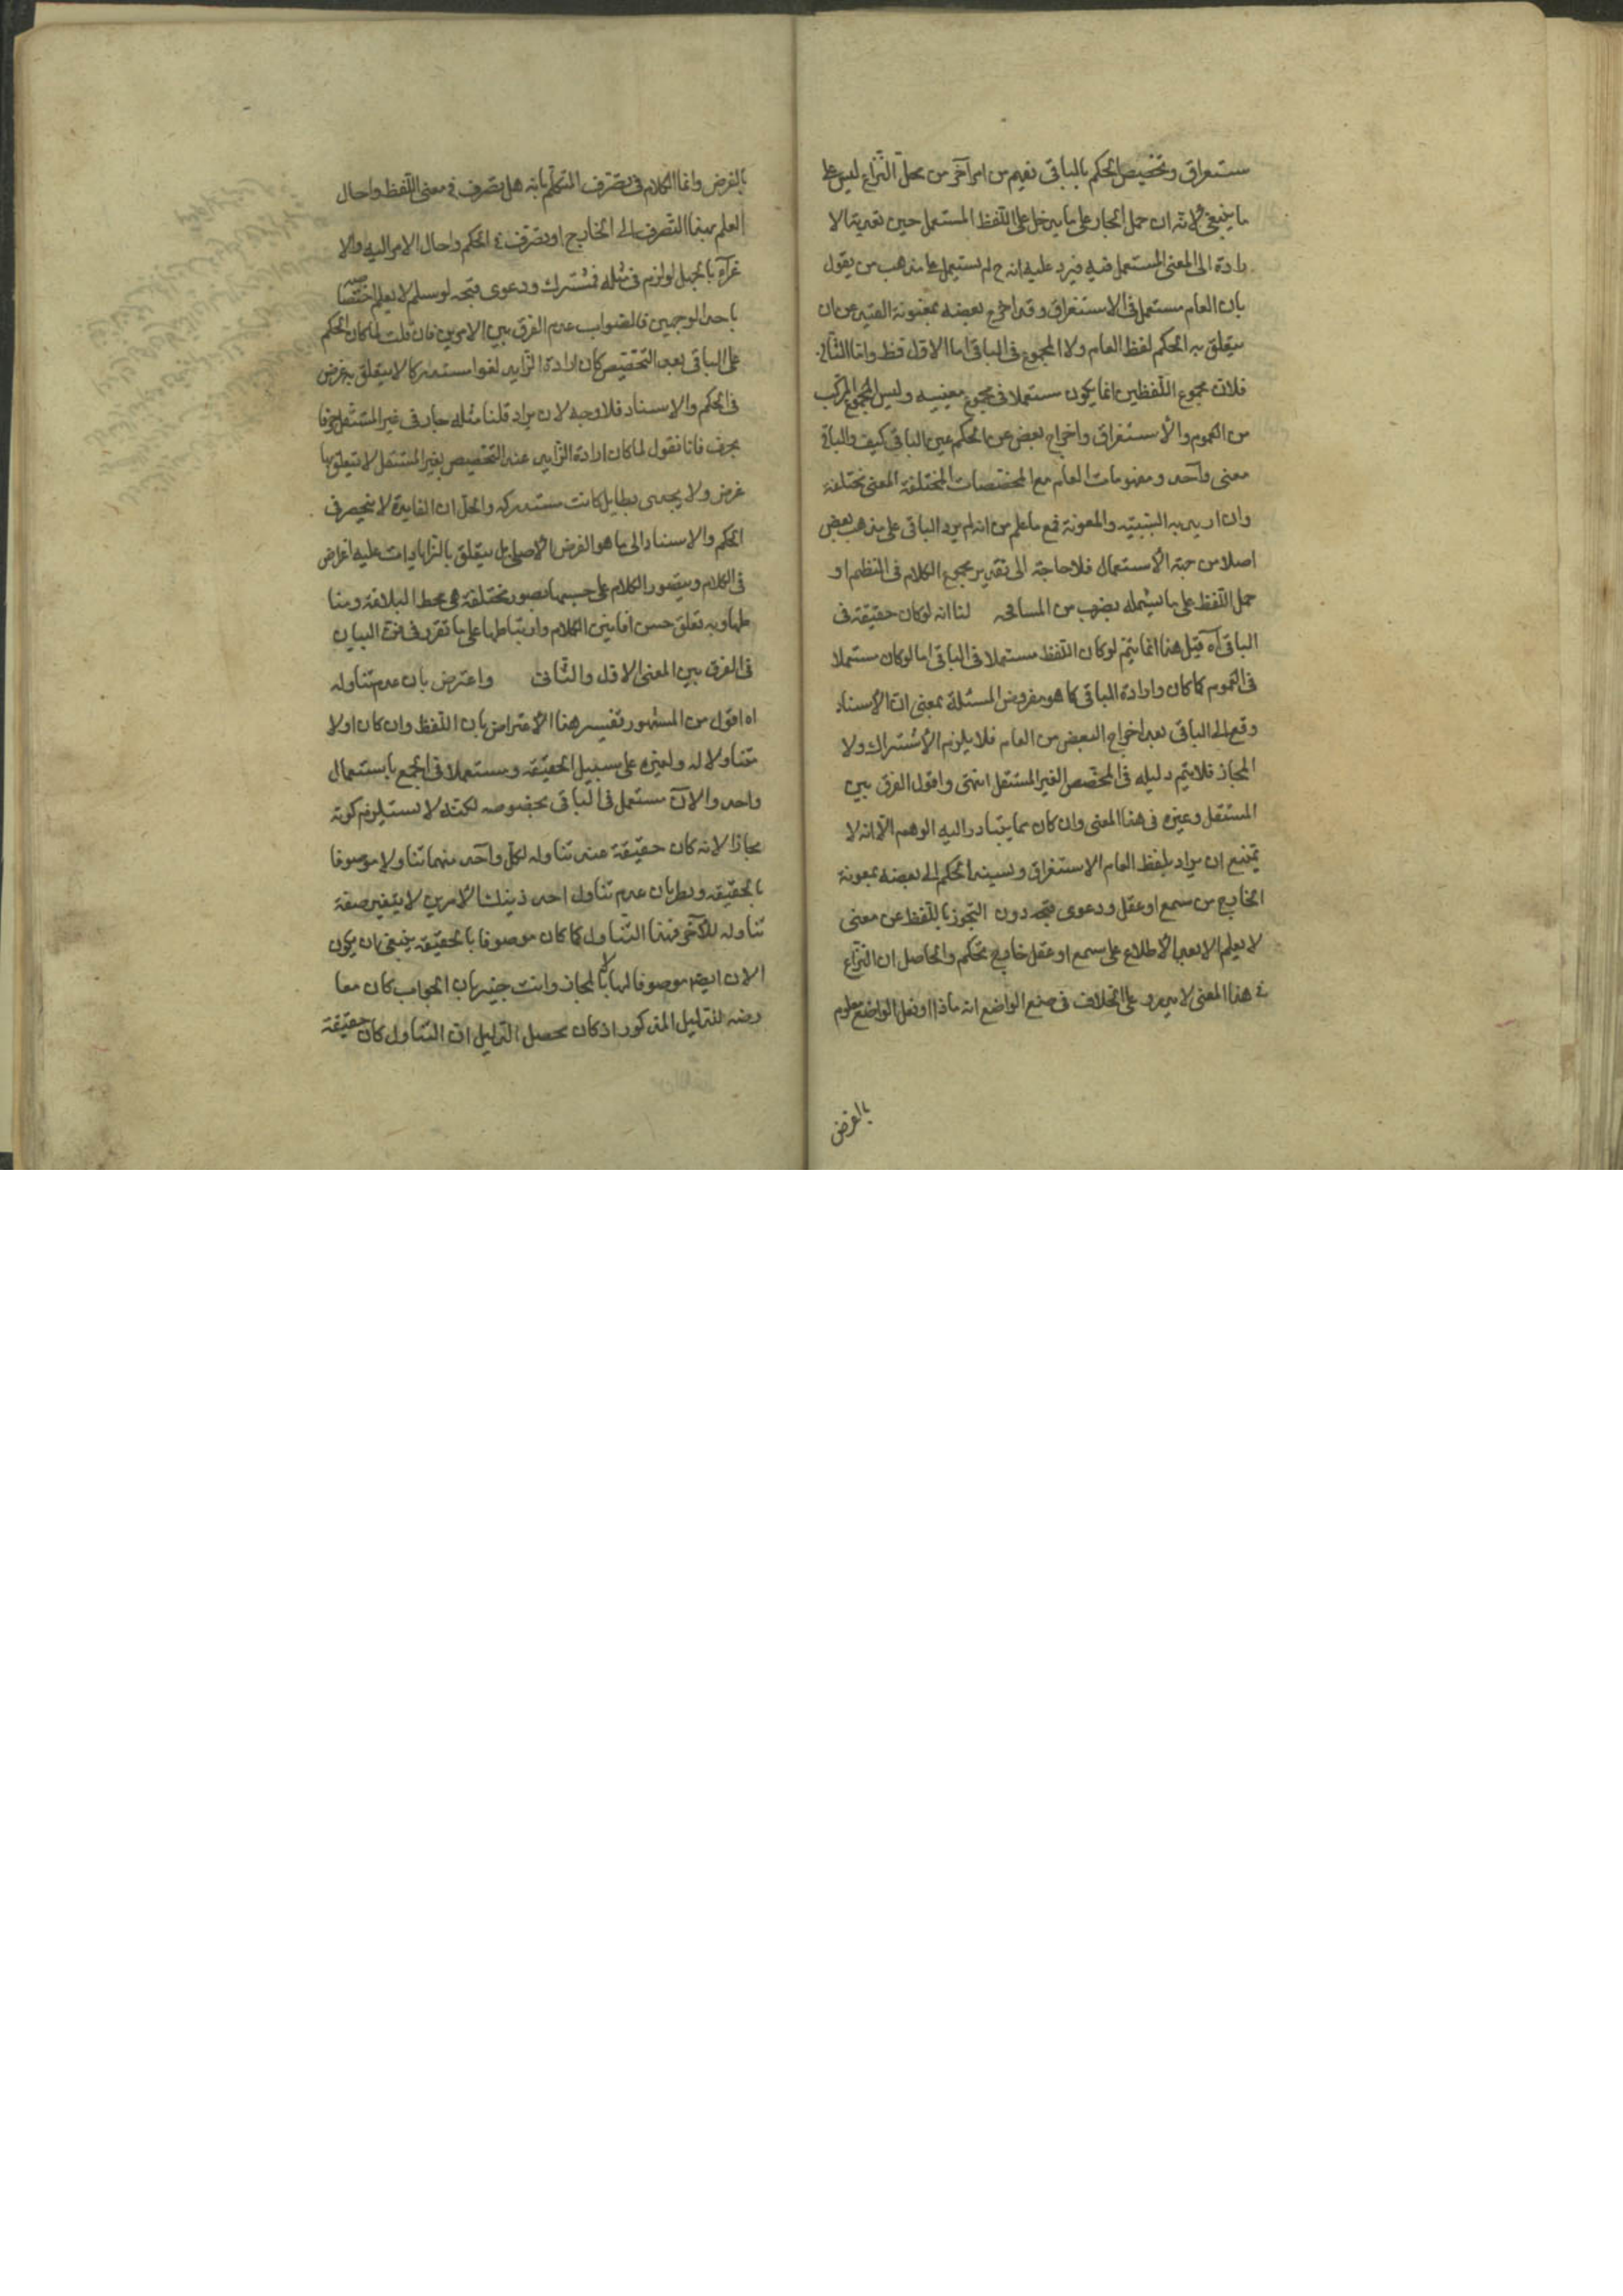 ستغراق وتخصيص الحكم بالباقى نعيم من امر آخر من محل النّزاع ليس على
ما ينبغى لانه ان حمل الجار على ما يدخل على اللّفظ المستعمل حين تعدية الا
رادة الى المعنى المستعمل فيه فيرد عليه انه ح لم يستعمل على مذهب من يقول
بان العام مستعمل فى الاستغراق وقد اخرج بعضه بمعونة القيد عن ان
يتعلق به الحكم لفظ العام ولا المجموع فى الباقى اما الاول فظ واما الثانى
فلان مجموع اللّفظين انما يكون مستعملا فى مجموع معنييه وليس المجموع المركب
من العموم والاستغراق واخراج بعض عن الحكم عين الباقى كيف والباقى
معنى واحد ومفهومات العام مع المخصصات المختلفة المعنى مختلفة
وان اريد به السّببيّة والمعونة فمع ما علم من انه لم يرد الباقى على مذهب بعض
اصلا من جهة الاستعمال فلا حاجة الى تقدير مجموع الكلام فى النظم او
حمل اللّفظ على ما يشمله بضرب من المسامحه لنا انه لو كان حقيقة فى
الباقى آه قيل هذا انما يتم لو كان اللّفظ مستعملا فى الباقى اما لو كان مستعملا
فى العموم كما كان وارادة الباقى كما هو مفروض المسئلة بمعنى ان الاسناد
وقع الى الباقى بعد اخراج البعض من العام فلا يلزم الاشتراك ولا
المجاز فلا يتم دليله فى المخصّص الغير المستقل انتهى واقول الفرق بين
المستقل وغيره فى هذا المعنى وان كان مما يتبادر اليه الوهم الّا انه لا
يمتنع ان يراد بلفظ العام الاستغراق ويسند الحكم الى بعضه بمعونة
الخارج من سمع او عقل ودعوى فتجه دون التجوز باللّفظ عن معنى
لا يعلم الا بعد الاطلاع على سمع او عقل خارج تحكم والحاصل ان النّزاع
فى هذا المعنى لا يبرد على الخلاف فى صنع الواضع انه ماذا او فعل الواضع معلوم
بالفرض
بالفرض وانما الكلام فى تصّرف المتكلّم بانه هل يصّرف فى معنى اللّفظ واحال
العلم بهذا التّصرف الى الخارج او تصّرف فى الحكم واحال الامر اليه والا
غرآء بالجهل لو لزم فى مثله فمشترك ودعوى فتجه لو سلم لا يعلم اختصاصه
باحد الوجهين فالصّواب عدم الفرق بين الامرين فان قلت لما كان الحكم
على الباقى بعد التّخصيص كان ارادة الزّايد لغوا مستدركا لا يتعلق به غرض
فى الحكم والاسناد فلا وجه لان يراد قلنا مثله جار فى غير المستقل حرفا
بحرف فانا نقول لما كان ارادة الزّايد عند التّخصيص بغير المستقل لا يتعلق بها
غرض ولا يجدى بطايل كانت مستدركه والحل ان الفايدة لا ينحصر فى
الحكم والاسناد الى ما هو الغرض الاصلى بل يتعلق بالزّايادات عليه اغراض
فى الكلام ويتصور الكلام على حسبها بصور مختلفة هى محط البلاغة ومنا
طها وبه تعلق حسن افانين الكلام وارتباطها على ما تقرر فى فن البيان
فى الفرق بين المعنى الاول والثّانى واعترض بان عدم تناوله
اه اقول من المشهور تفسير هذا الاعتراض بان اللّفظ وان كان اولا
متناولا له ولغيره على سبيل الحقيقه ومستعملا فى الجمع باستعمال
واحد والآن مستعمل فى الباقى بخصوصه لكنّه لا يستلزم كونه
مجازا لانه كان حقيقة عند تناوله لكل واحد منهما تناولا موصوفا
بالحقيقه وبطريان عدم تناول احد ذينك الامرين لا يتغير صفة
تناوله للآخر فهذا التّناول كما كان موصوفا بالحقيقة ينبغى ان يكون
الان ايضا موصوفا لها لا بالمجاز وانت خبير بان الجواب كان معا
رضه للدّليل المذكور اذ كان محصل الدّليل ان التّناول كان حقيقة